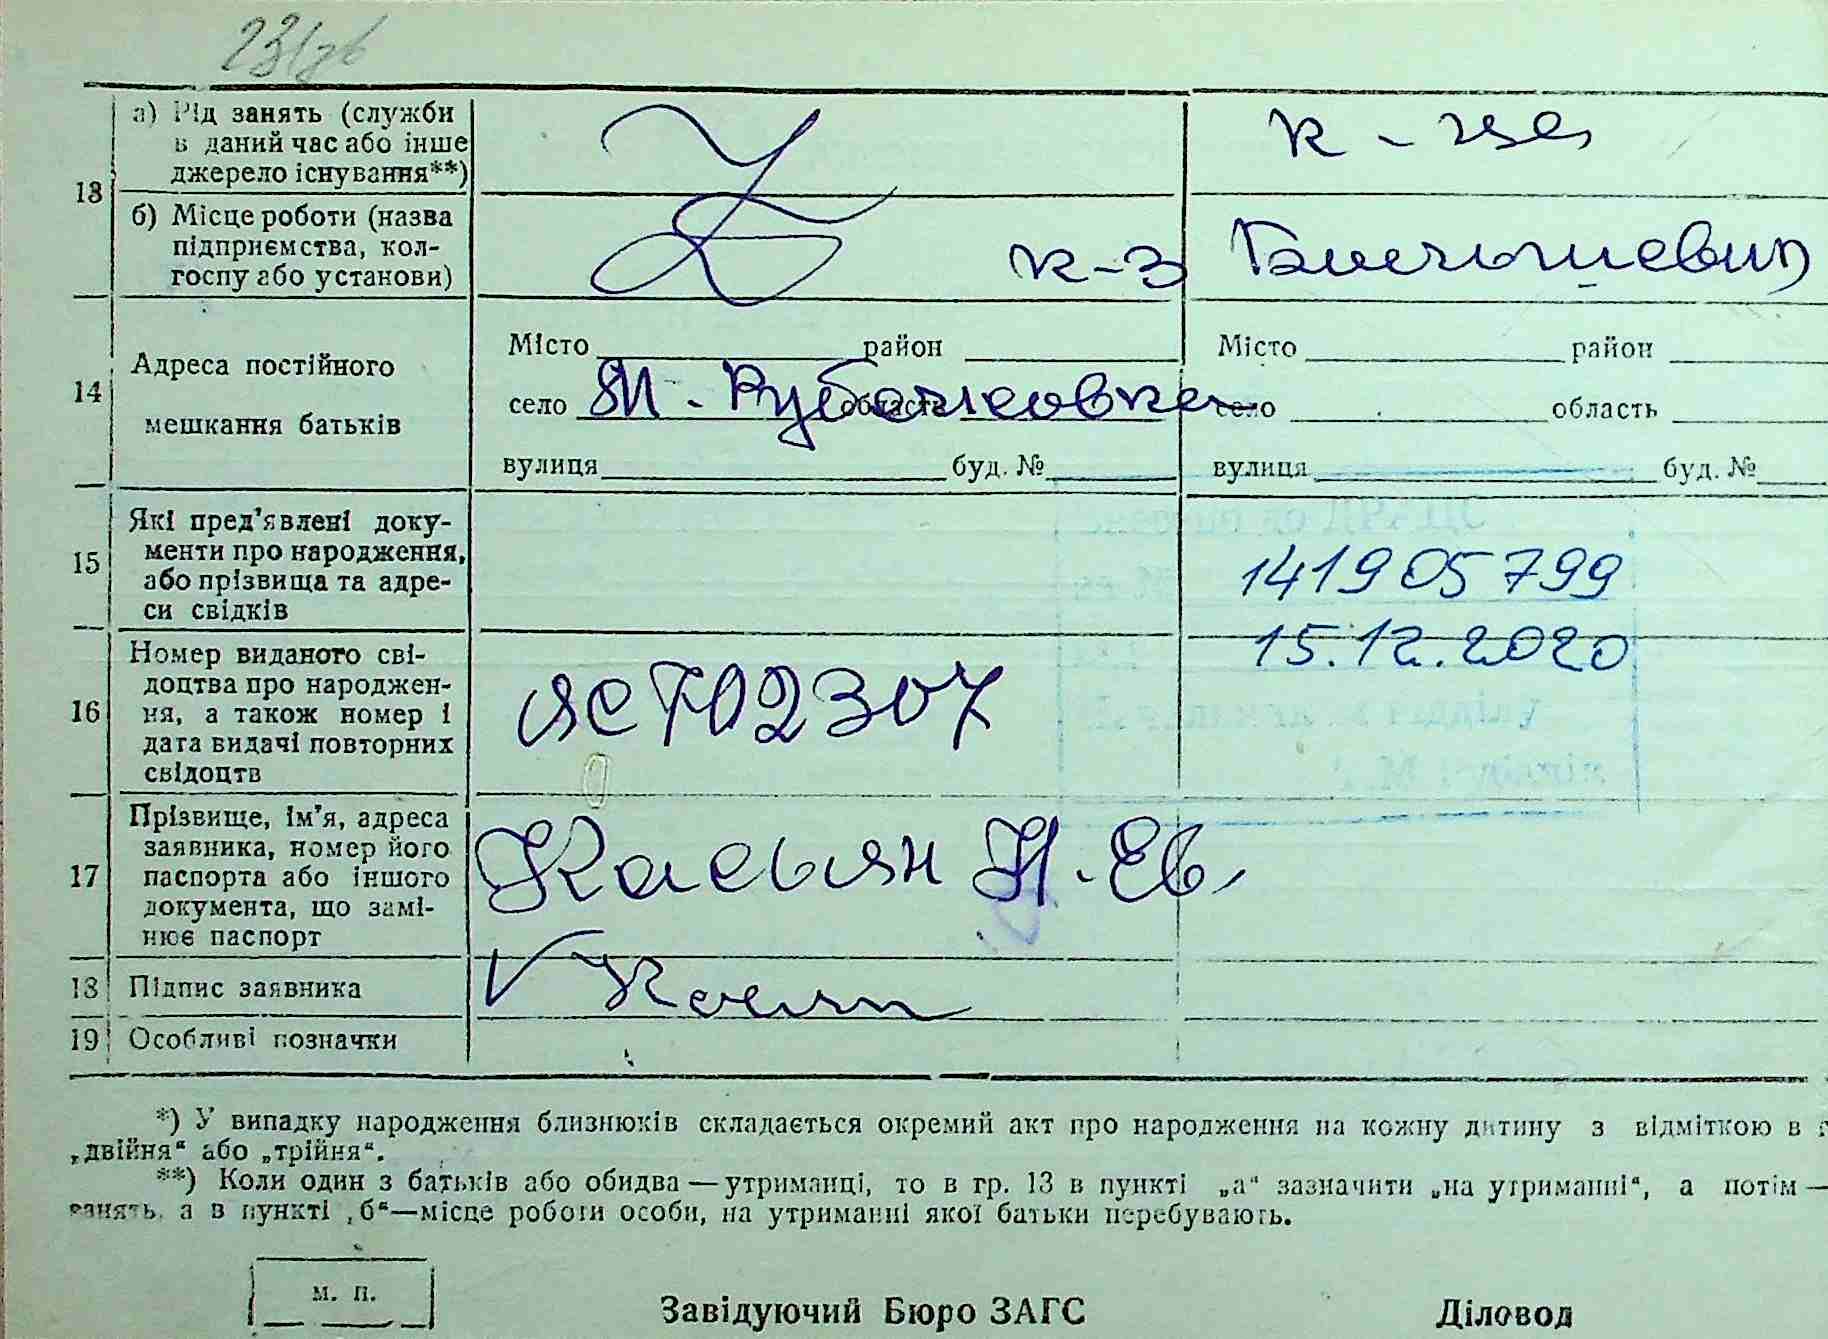 а) Рід занять (служби
в даний час або інше
джерело існування**)
к-ця
13
б) Місце роботи (назва
підприємства, кол-
госпу або установи)
к-з Більшевик
14
Адреса постійного
мешкання батьків
Місто район
село М. Рубановка область
вулиця буд. №
Місто район
село область
вулиця буд. №
15
Які пред'явлені доку-
менти про народження,
або прізвища та адре-
си свідків
141905799
15.12.2020
16
Номер виданого сві-
доцтва про народжен-
ня, а також номер і
дата видачі повторних
свідоцтв
ЯС702307
17
Прізвище, ім'я, адреса
заявника, номер його
паспорта або іншого
документа, що замі-
нює паспорт
Касьян Н. Ев.
18 Підпис заявника
19 Особливі позначки
*) У випадку народження близнюків складається окремий акт про народження на кожну дитину з відміткою в г
„двійня“ або „трійня“.
**) Коли один з батьків або обидва — утриманці, то в гр. 13 в пункті „а“ зазначити „на утриманні“, а потім —
занять, а в пункті „б“—місце роботи особи, на утриманні якої батьки перебувають.
м. п.
Завідуючий Бюро ЗАГС Діловод